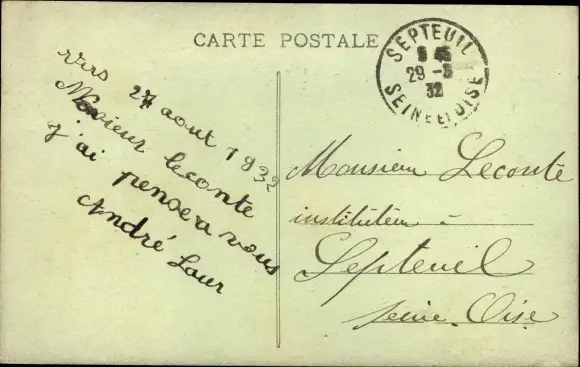 CARTE POSTALE
SEPTEUIL
8 45
29 -8
32
SEINE ET OISE
27 aout 1932
Monsieur leconte
j'ai pense a vous
André Laur
Monsieur Leconte
instituteur à
Septeuil
Seine Oise